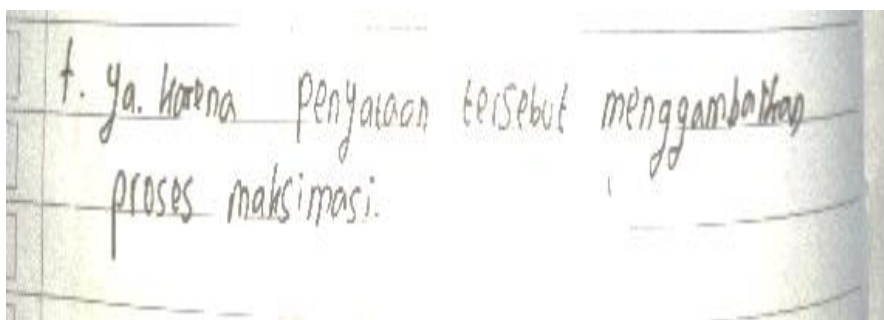 f. Ya. karena penyataan tersebut menggambarkan
proses maksimasi.